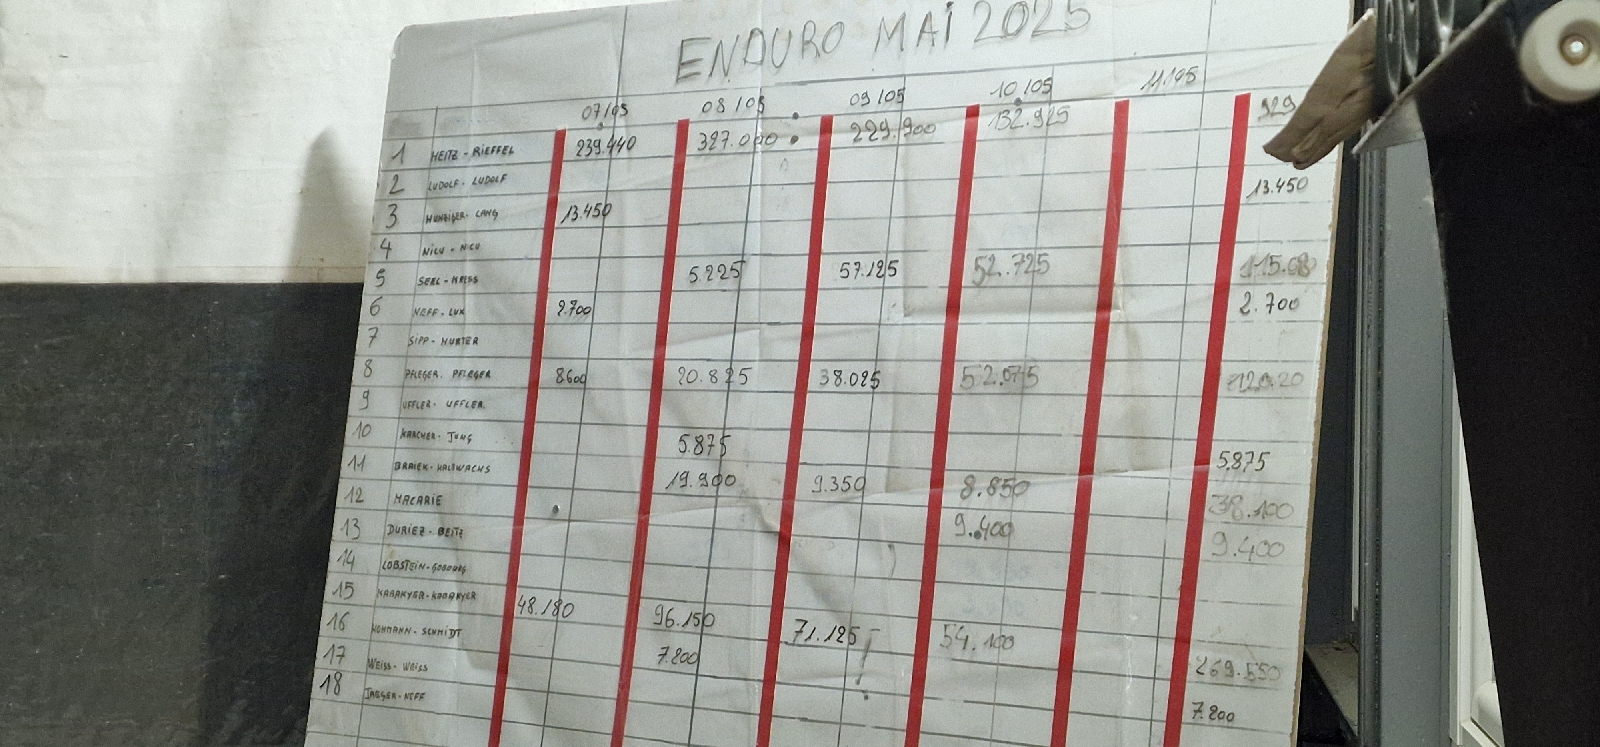 ENDURO MAI 2025
07/05 08/05 09/05 10/05 11/05
1 HEITZ - RIEFFEL 239.440 327.000 229.900 132.925 929
2 LUDOLF - LUDOLF
3 HUNZIGER - LANG 13.450 13.450
4 NICU - NCU
5 SEEL - 5.225 57.125 52.725 115.08
6 NEFF - LUX 2.700 2.700
7 SIPP - HURTER
8 PFLEGER - PFLEGER 8600 20.825 38.025 52.075 120.20
9 UFFLER - UFFLER
10 KARCHER - JUNG 5.875 5.875
11 BRAIEK - KALTWACHS 19.900 9.350 8.850 38.100
12 MACARIE 9.400 9.400
13 DURIEZ - BEITZ
14 LOBSTEIN -
15 48.180 96.150 71.125 54.100 269.550
16 HOHMANN - SCHMIDT 7.200 7.200
17 WEISS - WEISS
18 JAEGER - NEFF